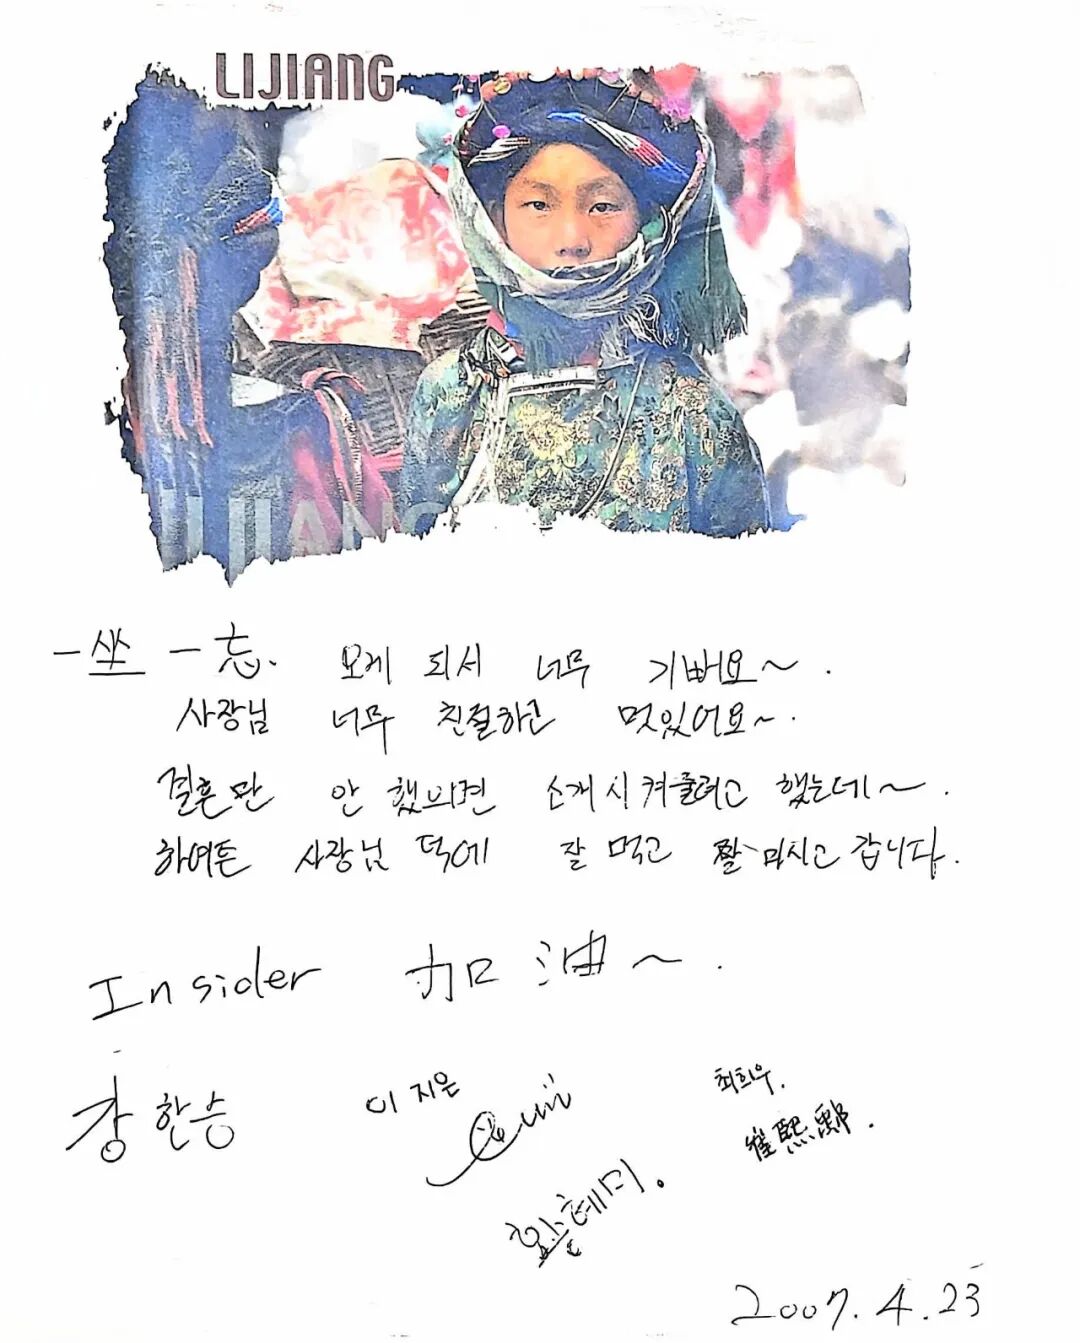 LIJIANG
LIJIANG
一坐一忘. 오게 되서 너무 기뻐요~.
사장님 너무 친절하고 멋있어요~.
결혼만 안 했으면 소개시켜줄려고 했는데~.
하여튼 사장님 덕에 잘 먹고 잘 마시고 갑니다.
Insider 加油~.
강한승
이지은
최희우.
崔熙
황혜미.
2007.4.23